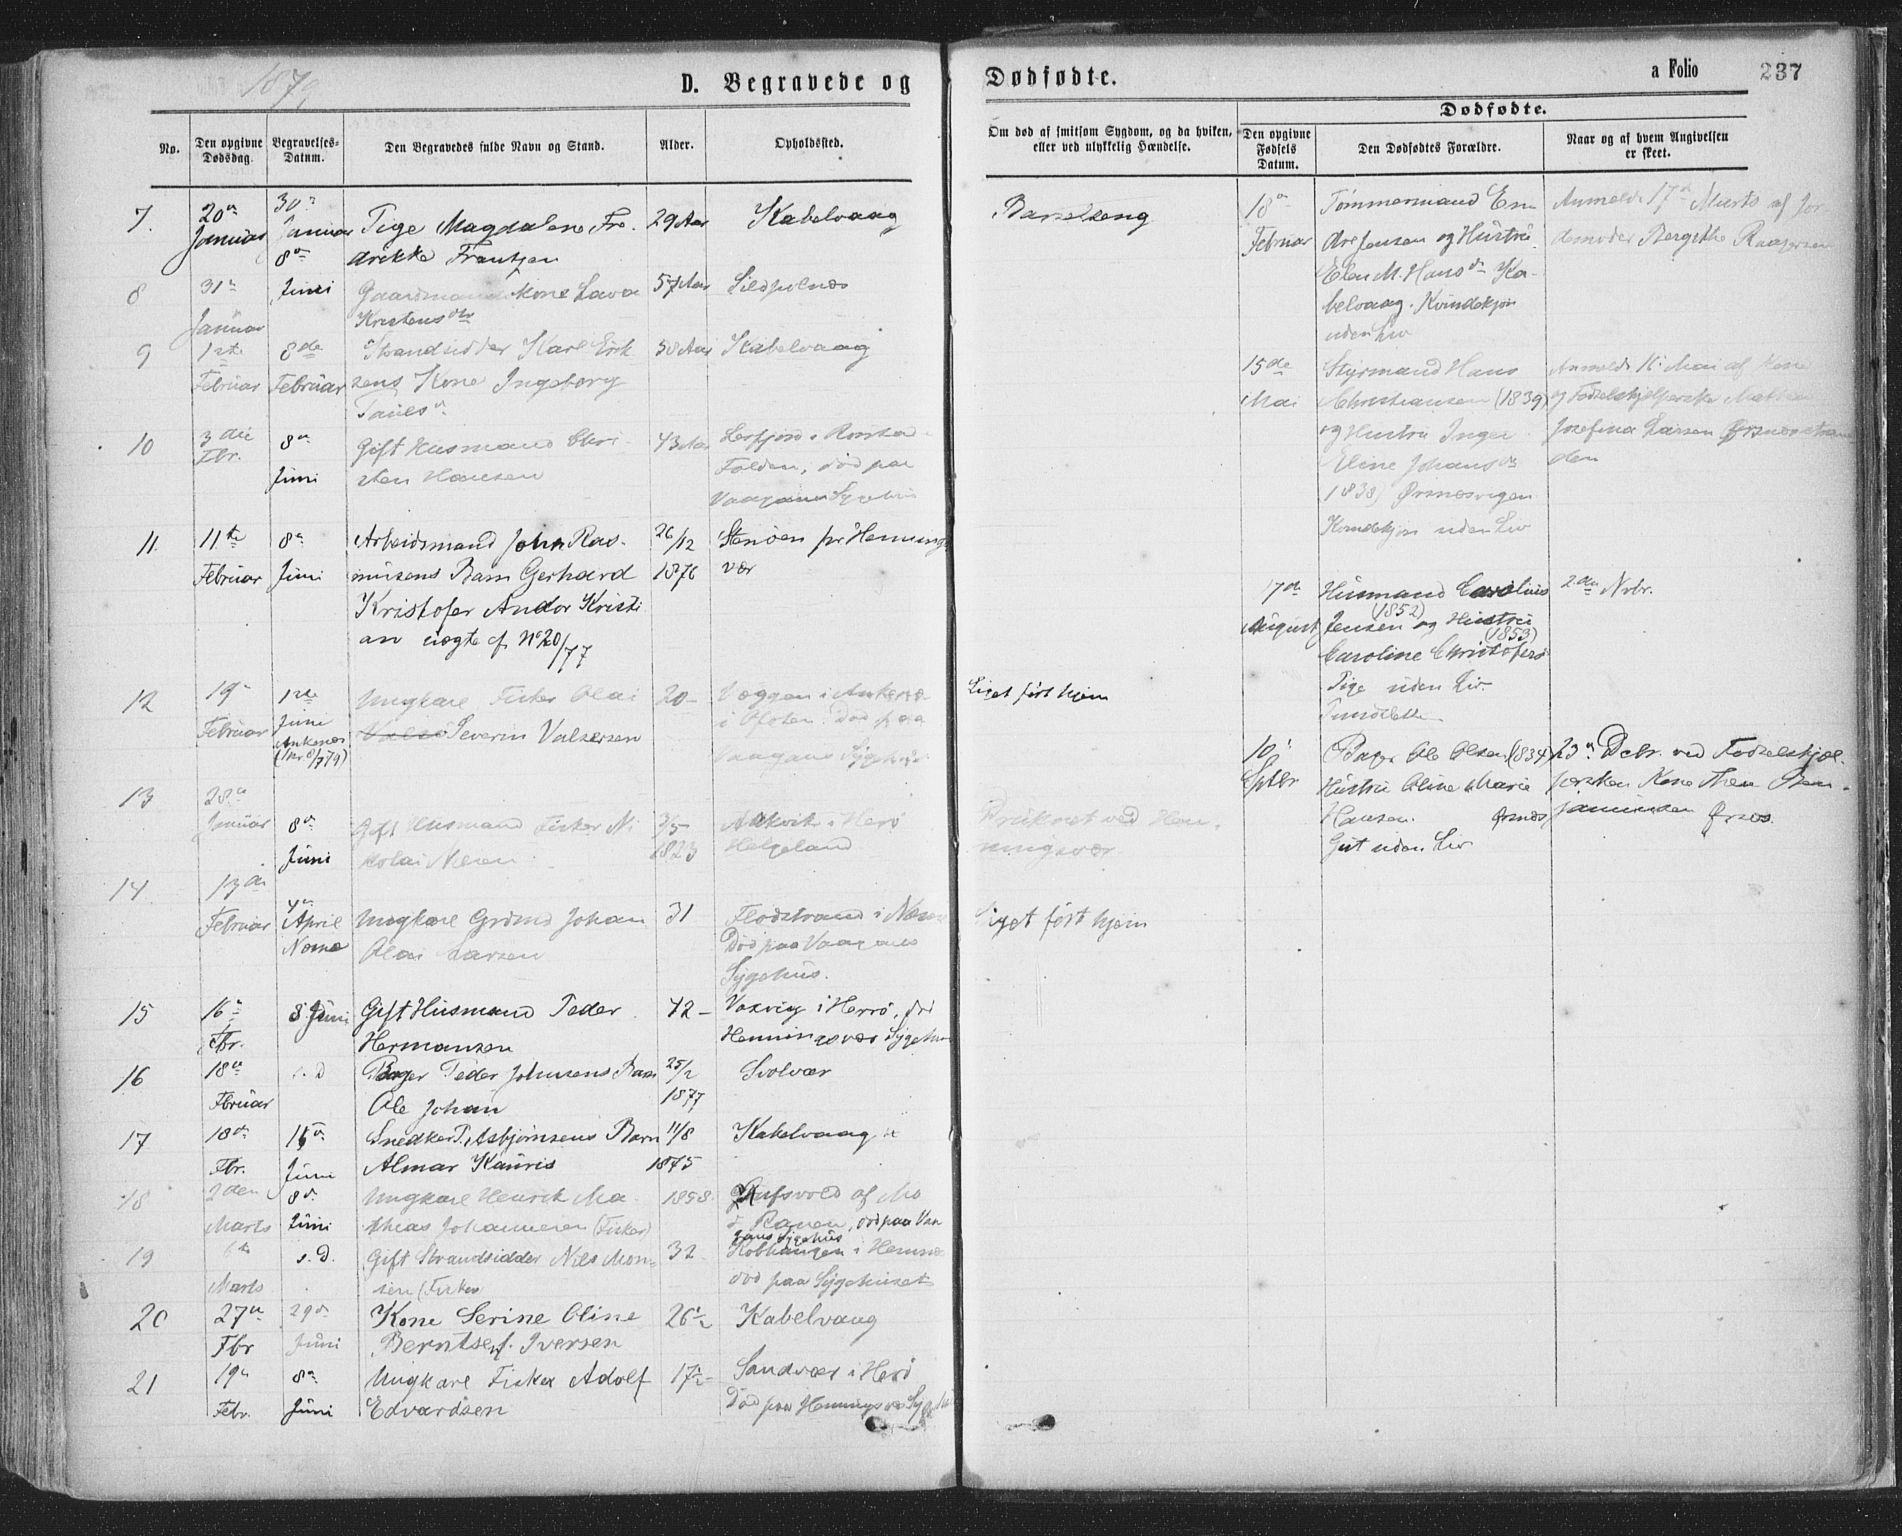 1879
D. Begravede og
Dødfødte.
a Folio
237
No.
Den opgivne Dødsdag.
Begravelses-Datum.
Den Begravedes fulde Navn og Stand.
Alder.
Opholdssted.
Om død af smitsom Sygdom, og da hvilken, eller ved ulykkelig Hændelse.
Dødfødte.
Den opgivne Fødsels Datum.
Den Dødfødtes Forældre.
Naar og af hvem Angivelsen er skeet.
7.
20de Januar
30te Januar
Pige Magdalene Fre-
drekke Frantzen
29 Aar
Kabelvaag
Barselseng
8
31te Januar
8de Juni
Gaardmands Kone Lava
Kristensdtr
57 Aar
Sildpolnæs
9
1ste Februar
8de Februar
Strandsidder Karl Erik
sens Kone Ingeborg
58 Aar
Kabelvaag
10
3die Fbr.
8de Juni
Gift Husmand Chri-
sten Hansen
43 Aar
Folden, død paa
Vaagans Sygehus
11.
11te Februar
8de Juni
Arbeidsmand John Ras-
musens Barn Gerhard
Kristofer Andor Kristi
an uægte cf. No 20/77
26/12 1876
Stenøen pr Hennings
vær
12
19de Februar
1ste Juni
Ankenæs
(No 8/779)
Ungkarl Fisker Olai
Severin Valsersen
20 -
Væggen i Ankenæs
i Ofoten. Død paa
Vaagans Sygehus
Liget ført hjem
13
28de Januar
8de Juni
Gift Husmand Fisker Ni
kolai
3/5 1823
i Herø
Helgeland
Druknet ved Hen-
ningsvær
14.
13de Februar
4de April
Nesne
Ungkarl Johan
Olai Larsen
31
Flodstrand i Nesne
Død paa Vaagans
Sygehus.
Liget ført hjem
15
16de Fbr.
8 Juni
Gift Husmand Peder
Hermansen
42 -
i Herrø, død
Henningsvær Sygehus
16
18de Februar
s. D
Peder Johnsens Barn
Ole Johan
25/2 1877
Svolvær
17
18de Fbr.
15de Juni
Snedker P. Asbjørnsens Barn
Almar Kauris
11/8 1875
Kabelvaag
18
2den Marts
8de Juni
Ungkarl Henrik Ma-
thias Johannesen (Fisker)
1858.
af Mo
i Ranen, død paa Vaa
gans Sygehus
19
6te Marts
s. D.
Gift Strandsidder Nils Mon-
sen (Fisker
32
i Hemnæs
død paa Sygehuset
20
27de Fbr
29de Juni
Kone Serine Oline
Berntsen f. Iversen
26 1/2
Kabelvaag
21
19de Febr.
8de Juni
Ungkarl Fisker Adolf
Edvardsen
17 1/2 -
Sandvær i Herø
Død paa Henningsvær Sygehus
18de Februar
Tømmermand En
dre Jensen og Hustru
Elen M. Hansdtr Ka-
belvaag. Kvindekjøn
uden Liv
Anmeldt 17de Marts af Jor
demoder Bergithe
15de Mai
Styrmand Hans
Christiansen (1839)
og Hustru Inger
Eline Johansdtr
1838) Ørsnesvigen
Kvindekjøn uden Liv
Anmeldt 16 Mai af Kone
og Fødselshjelperske
Josefina Larsen Ørsnesstran
den
17de August
Husmand Carolius
(1852)
Jensen og Hustru
(1853)
Caroline Christofers
Pige uden Liv.
2den Nvbr.
10de Sptbr
Ole Olsen (1834)
Hustru Oline Marie
Hansen. Ørsnes
Gut uden Liv
23de Dcbr. ved Fødselshjæl-
persken Kone Thea Ben-
jaminsen Ørsnes.